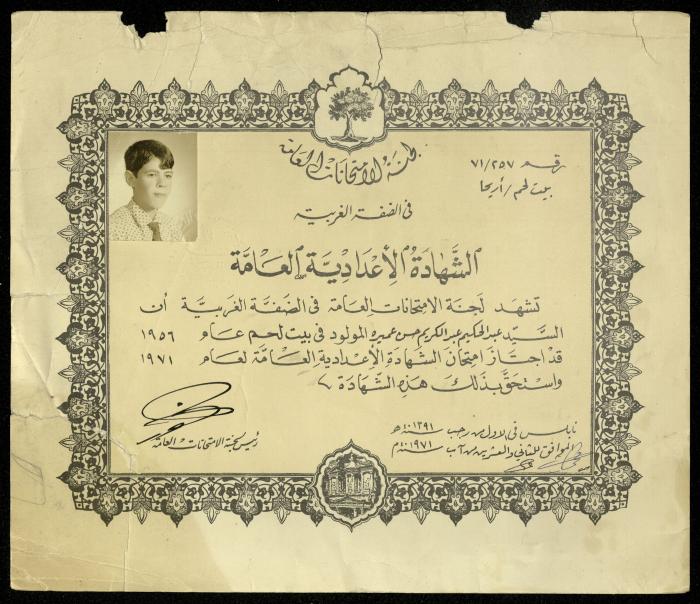 لجنة الامتحانات العامة
رقم ٧١/٢٥٧
بيت لحم/أريحا
في الضفة الغربية
الشهادة الإعدادية العامة
تشهد لجنة الامتحانات العامة في الضفة الغربية أن
السيد عبدالحكيم عبدالكريم حسن عميره المولود في بيت لحم عام ١٩٥٦
قد اجتاز امتحان الشهادة الإعدادية العامة لعام ١٩٧١
واستحق بذلك هذه الشهادة
نابلس في الاول من رجب سنة ١٣٩١ه
الموافق للثاني والعشرين من آب سنة ١٩٧١م
رئيس لجنة الامتحانات العامة